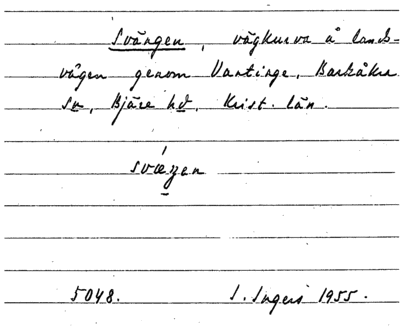 Svängen, vägkurva å lands-
vägen genom Vantinge, Barkåkra
sn, Bjäre hd, Krist. län.
svæŋen
5048. I. Ingers 1955.